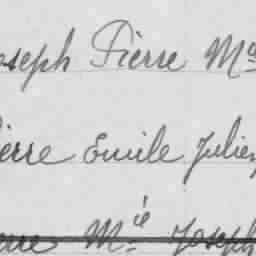 oseph Pierre M
ierre Emile Julien
erre M.ie Joseph